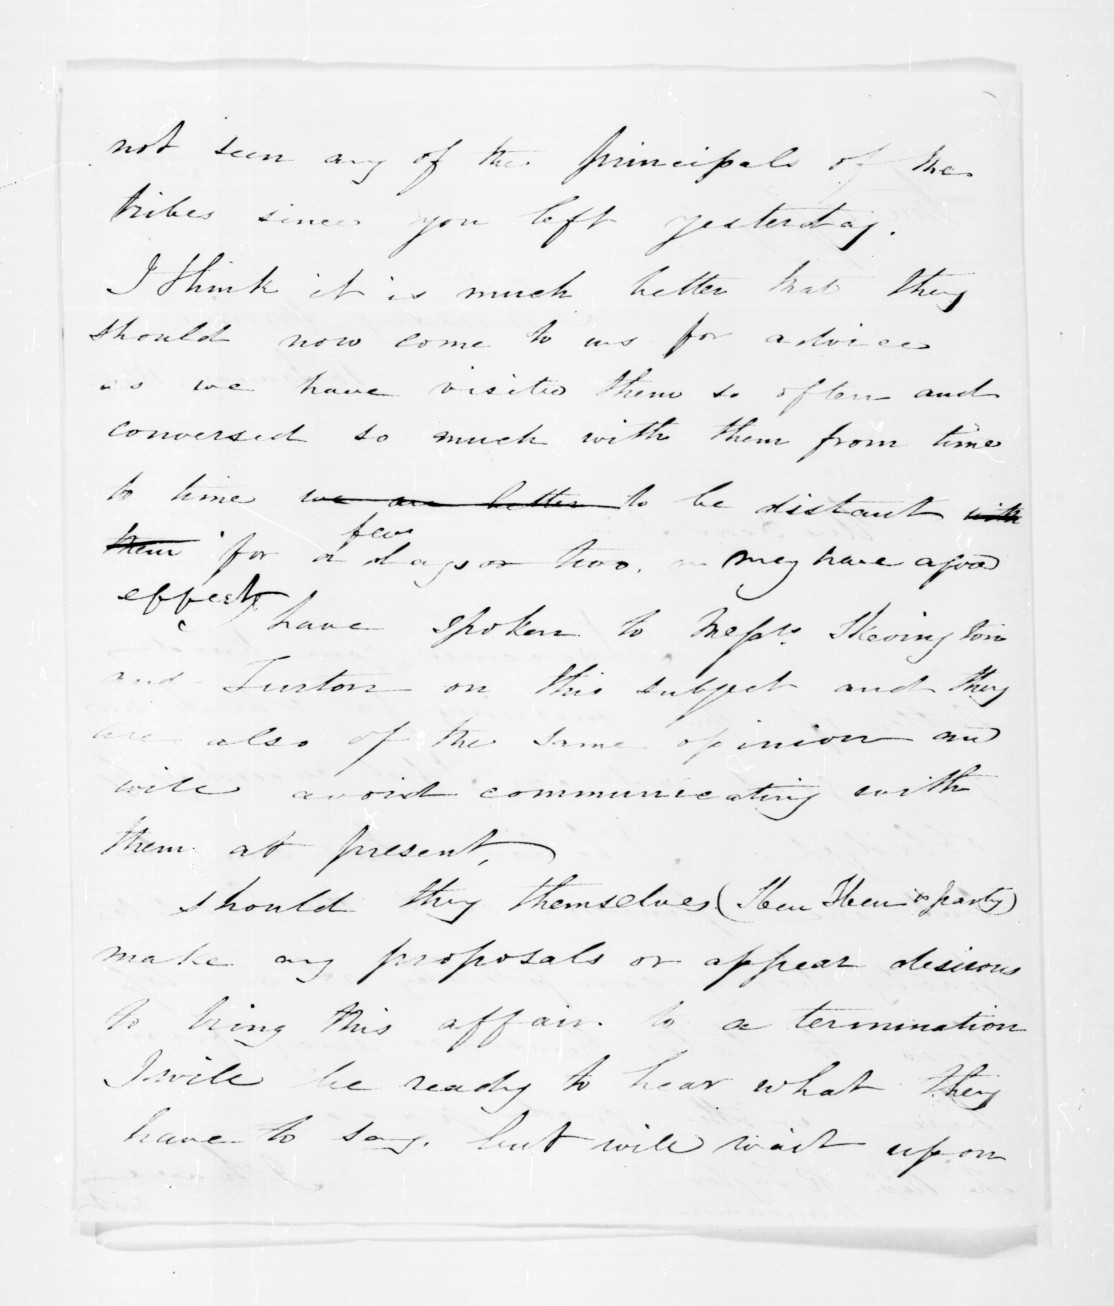 not seen any of the principals of the
tribes since you left yesterday.
I think it is much better that they
should now come to us for advice
as we have visited them so often and
conversed so much with them from time
to time we are better to be distant with
them for a few days or two. or may have a good
effect I have spoken to Messrs. Skevington
and Turton on this subject and they
are also of the same opinion and
will avoid communicating with
them at present,
should they themselves (Heu Heu & party)
make any proposals or appear desirous
to bring this affair to a termination
I will be ready to hear what they
have to say. but will wait upon